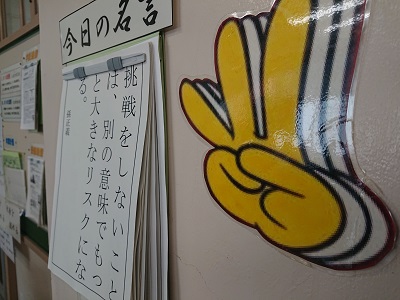 今日の名言
挑戦をしないこと
は、別の意味でもっ
と大きなリスクにな
る。
孫正義